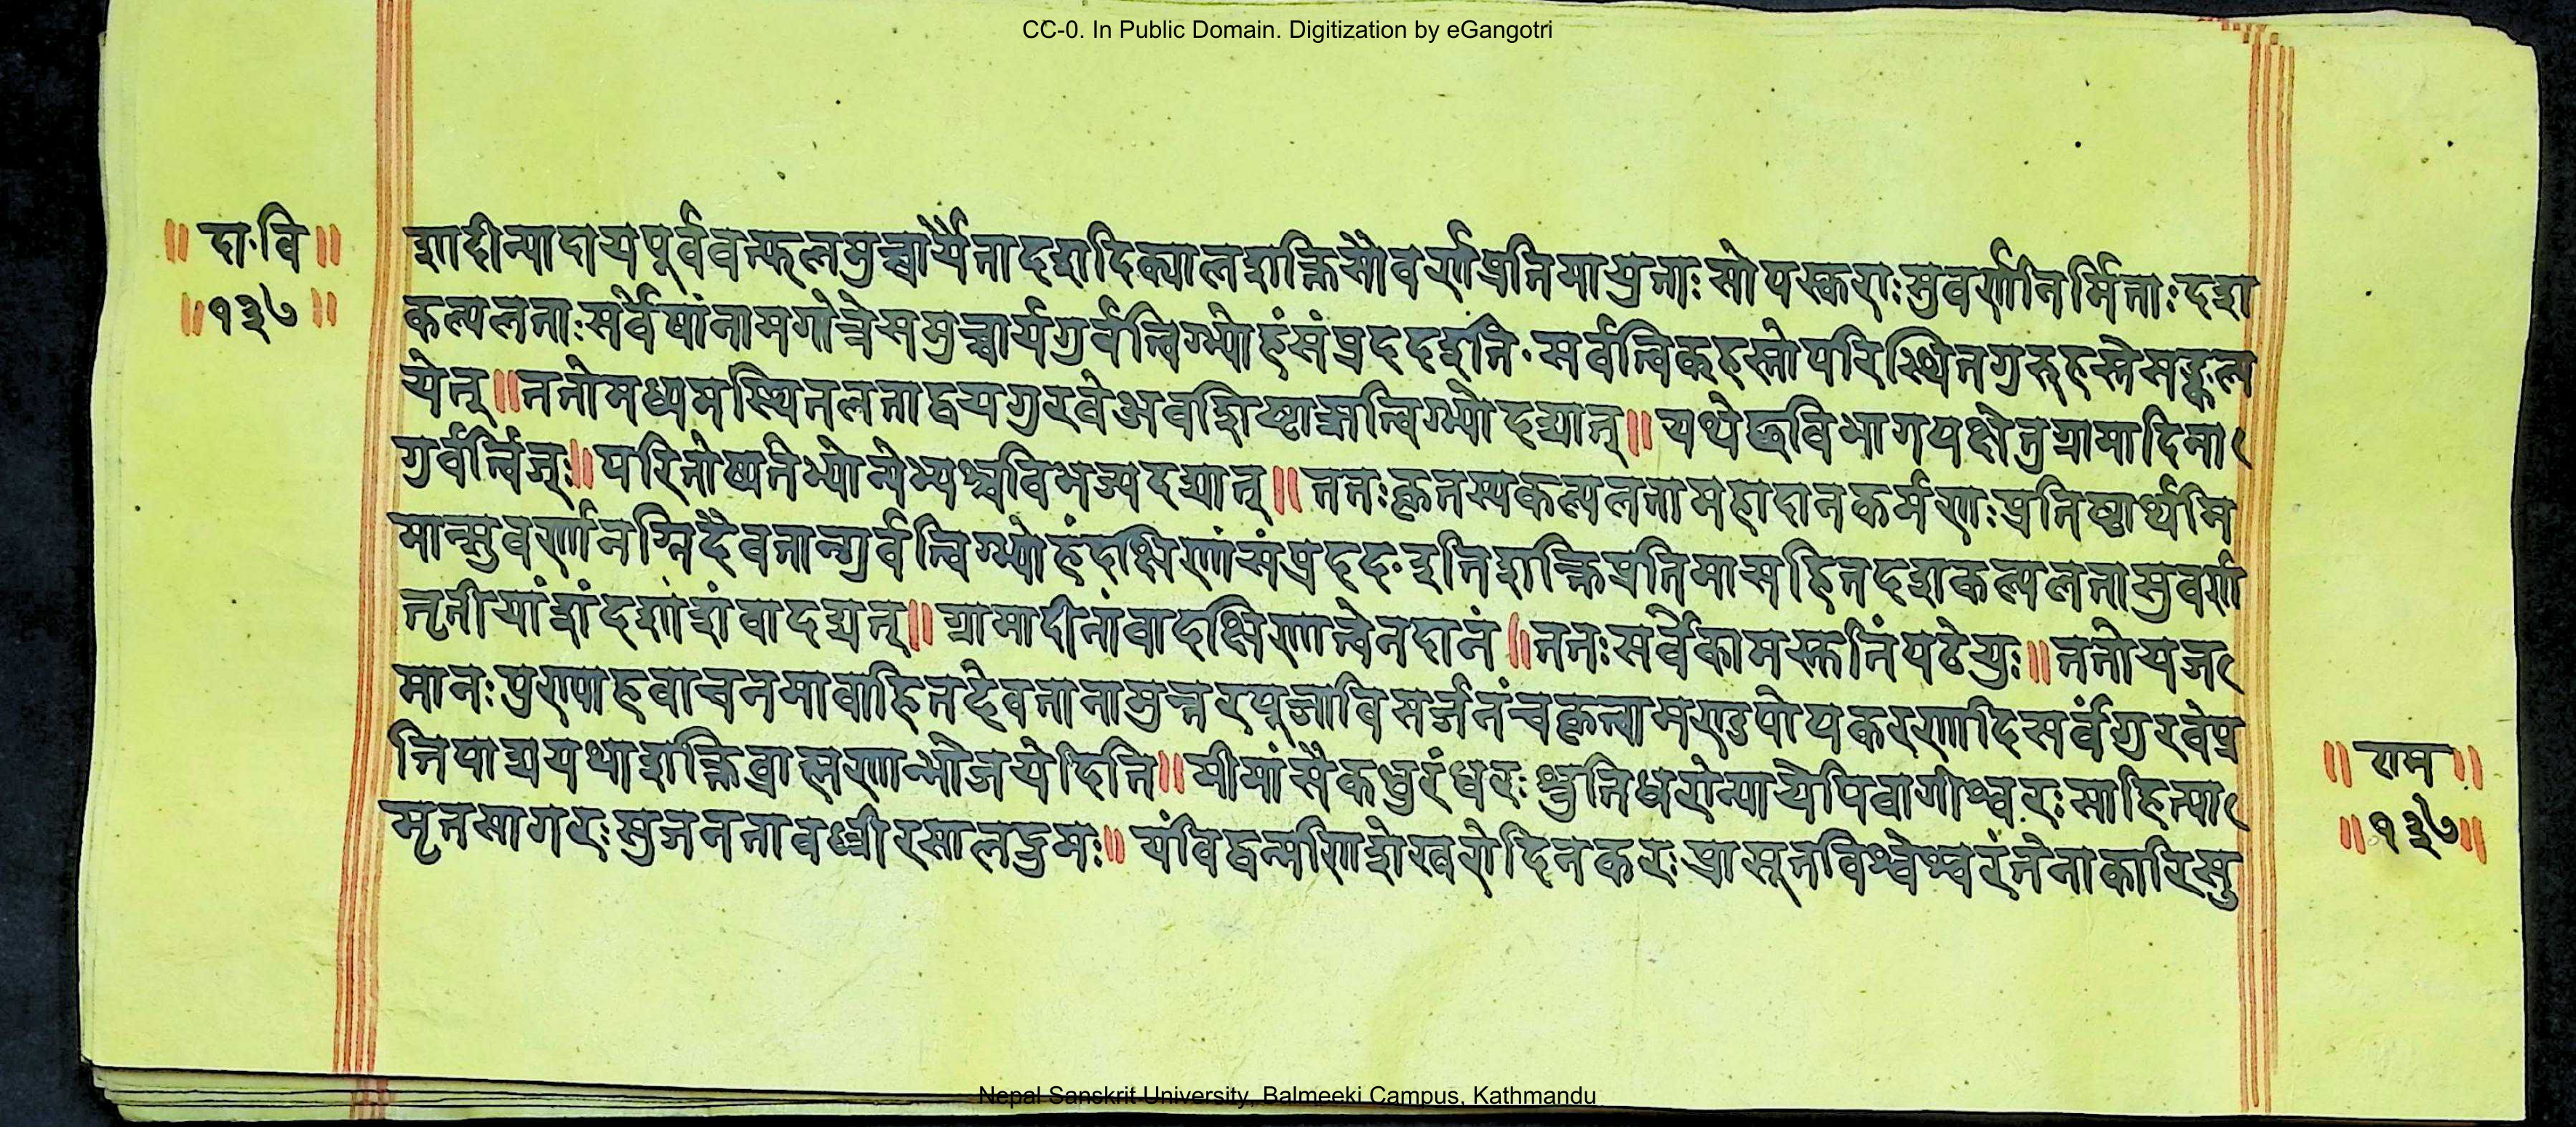 CC-0. In Public Domain. Digitization by eGangotri
॥ दा·वि ॥
॥१३७॥
शादीन्यादायपूर्ववत्फलमुच्चार्यैतादशदिक्पालशक्तिसौवर्णप्रतिमायुताः सोपस्कराः सुवर्णनिर्मिताः दश
कल्पलताः सर्वेषांनामगोत्रेसमुच्चार्यगुर्वर्त्विग्भ्योहंसंप्रददइति·सर्वर्त्विक्हस्तोपरिस्थितगुरुहस्तेसङ्कल्प
येत्॥ततोमध्यमस्थितलताद्वयगुरवेअवशिष्टाष्टावृत्विग्भ्योदद्यात्॥यथेछविभागपक्षेतुग्रामादिना
गुर्वर्त्विजः॥परितोष्यतेभ्योन्येभ्यश्चविभज्यदद्यात्॥ततःकृतस्यकल्पलतामहादानकर्मणःप्रतिष्ठार्थमि
मान्सुवर्णानग्निदैवतान्गुर्वर्त्विग्भ्योहंदक्षिणांसंप्रददइतिशक्तिप्रतिमासहितदशकल्पलतासुवर्ण
तृतीयांशंदशांशंवादद्यत्॥ग्रामादीनांवादक्षिणात्वेनदानं॥ततःसर्वेकामस्तुतिंपठेयुः॥ततोयज
मानःपुण्याहवाचनमावाहितदेवतानामुत्तरपूजाविसर्जनंचकृत्वामण्डपोपकरणादिसर्वंगुरवेप्र
तिपाद्ययथाशक्तिब्राह्मणान्भोजयेदिति॥मीमांसैकधुरंधरःश्रुतिधरोन्यायेपिवागीश्वरःसाहित्या
मृतसागरःसुजनतावध्वीरसालद्रुमः॥यंविद्वन्मणिशेखरोदिनकरःप्रासूतविश्वेश्वरंतेनाकारिसु
॥ राम ॥
॥१३७॥
Nepal Sanskrit University, Balmeeki Campus, Kathmandu